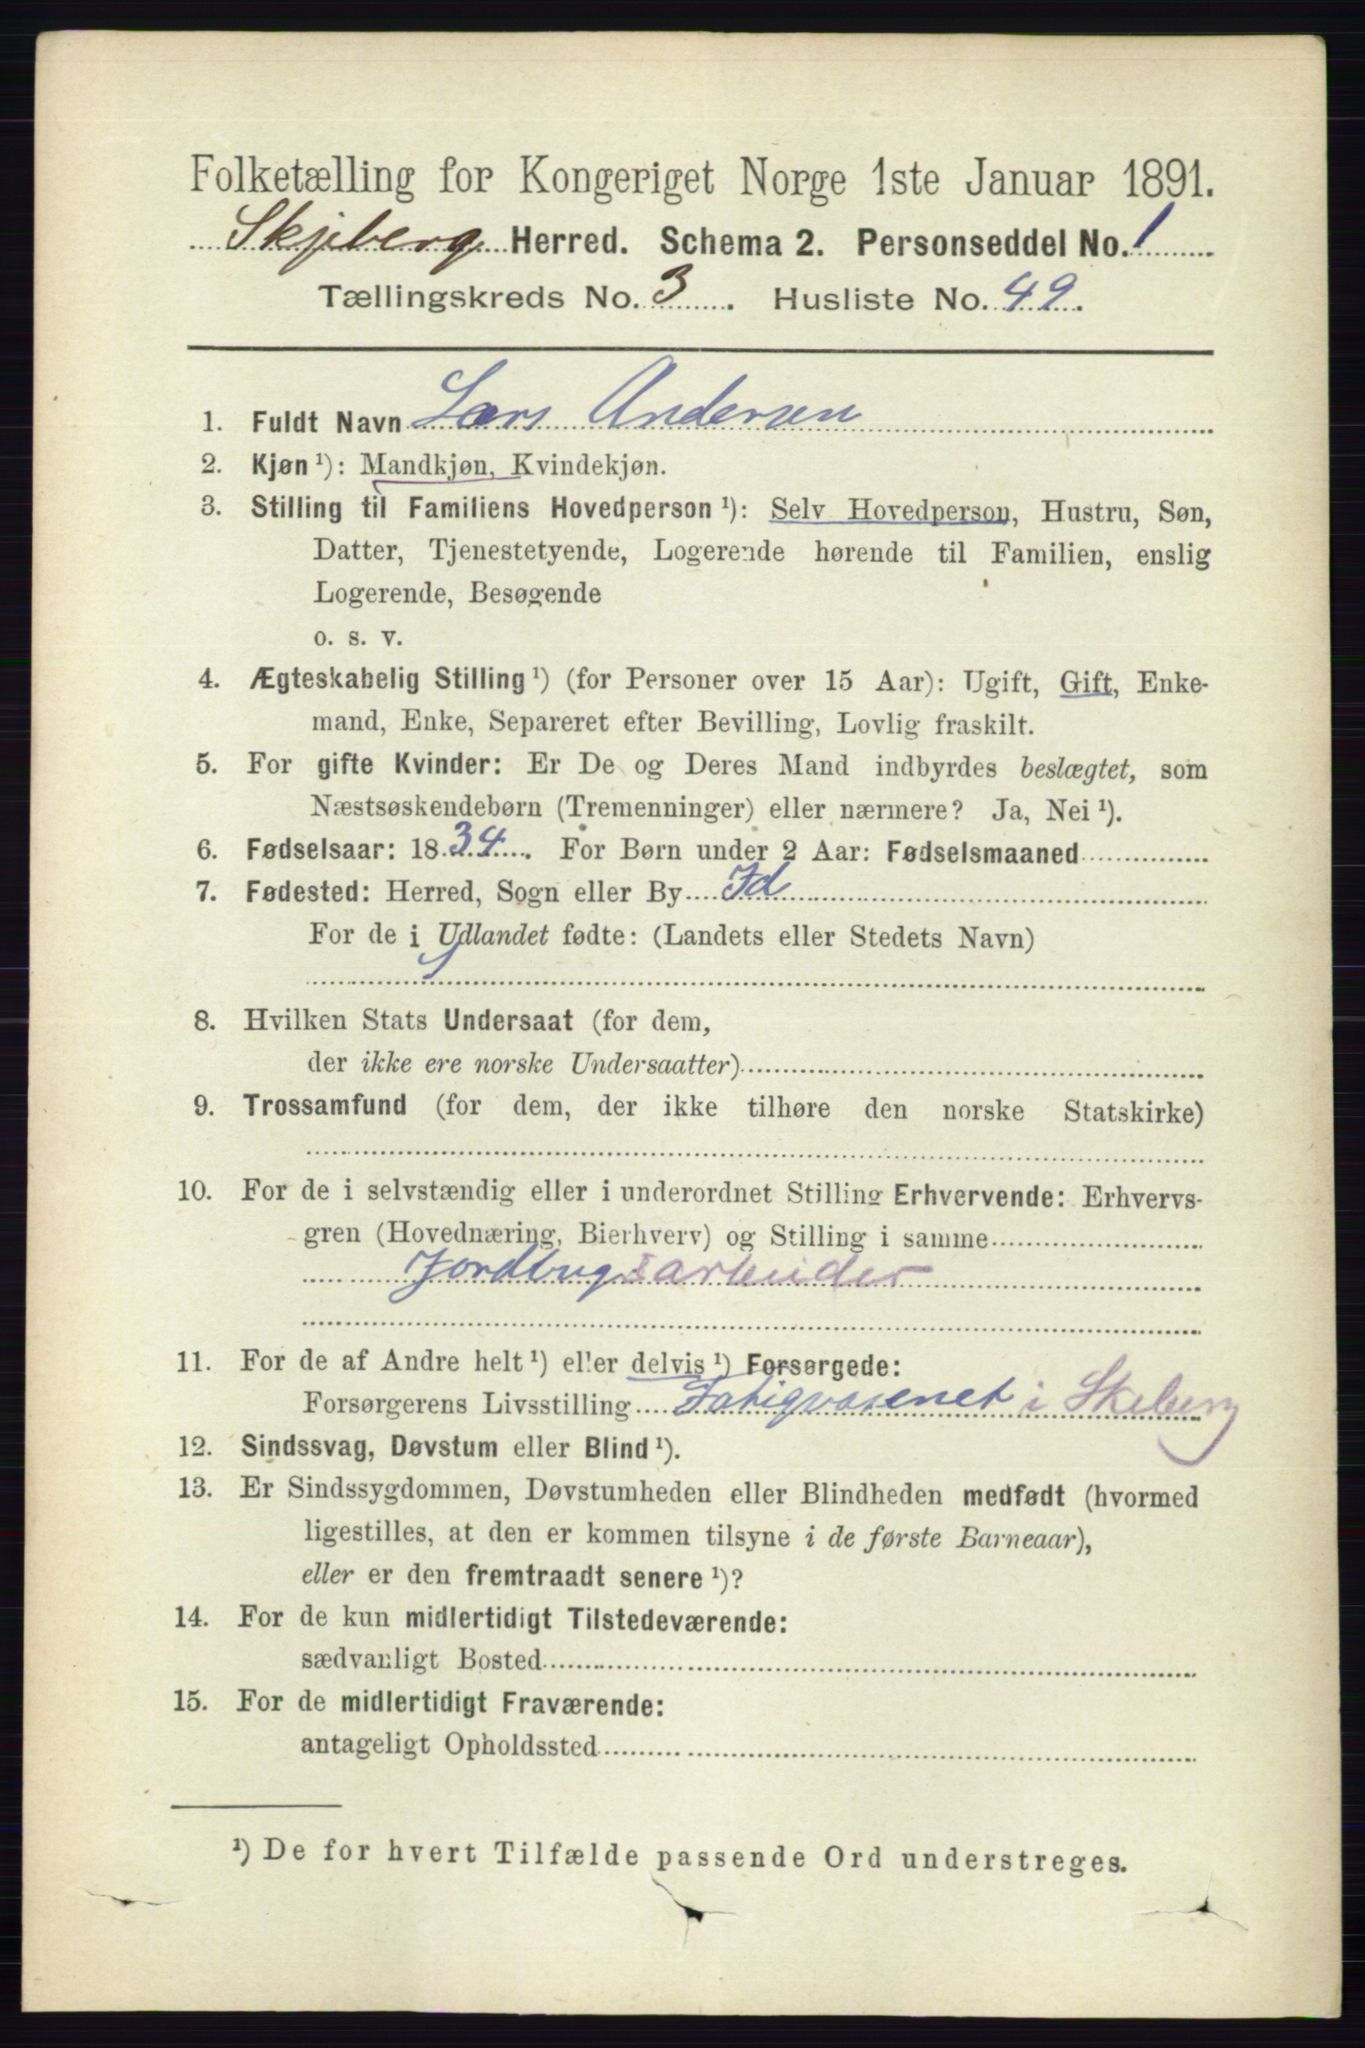 Folketælling for Kongeriget Norge 1ste Januar 1891.
Skjeberg Herred. Schema 2. Personseddel No. 1
Tællingskreds No. 3. Husliste No. 49.
1. Fuldt Navn Lars Andersen
2. Kjøn ¹): Mandkjøn, Kvindekjøn.
3. Stilling til Familiens Hovedperson ¹): Selv Hovedperson, Hustru, Søn,
Datter, Tjenestetyende, Logerende hørende til Familien, enslig
Logerende, Besøgende
o. s. v.
4. Ægteskabelig Stilling ¹) (for Personer over 15 Aar): Ugift, Gift, Enke-
mand, Enke, Separeret efter Bevilling, Lovlig fraskilt.
5. For gifte Kvinder: Er De og Deres Mand indbyrdes beslægtet, som
Næstsøskendebørn (Tremenninger) eller nærmere? Ja, Nei ¹).
6. Fødselsaar: 1834. For Børn under 2 Aar: Fødselsmaaned
7. Fødested: Herred, Sogn eller By Id
For de i Udlandet fødte: (Landets eller Stedets Navn)
8. Hvilken Stats Undersaat (for dem,
der ikke ere norske Undersaatter)
9. Trossamfund (for dem, der ikke tilhøre den norske Statskirke)
10. For de i selvstændig eller i underordnet Stilling Erhvervende: Erhvervs-
gren (Hovednæring, Bierhverv) og Stilling i samme
Jordbrugsarbeider
11. For de af Andre helt ¹) eller delvis ¹) Forsørgede:
Forsørgerens Livsstilling Fatigvæsenet i Skeberg
12. Sindssvag, Døvstum eller Blind ¹).
13. Er Sindssygdommen, Døvstumheden eller Blindheden medfødt (hvormed
ligestilles, at den er kommen tilsyne i de første Barneaar),
eller er den fremtraadt senere ¹)?
14. For de kun midlertidigt Tilstedeværende:
sædvanligt Bosted
15. For de midlertidigt Fraværende:
antageligt Opholdssted
¹) De for hvert Tilfælde passende Ord understreges.